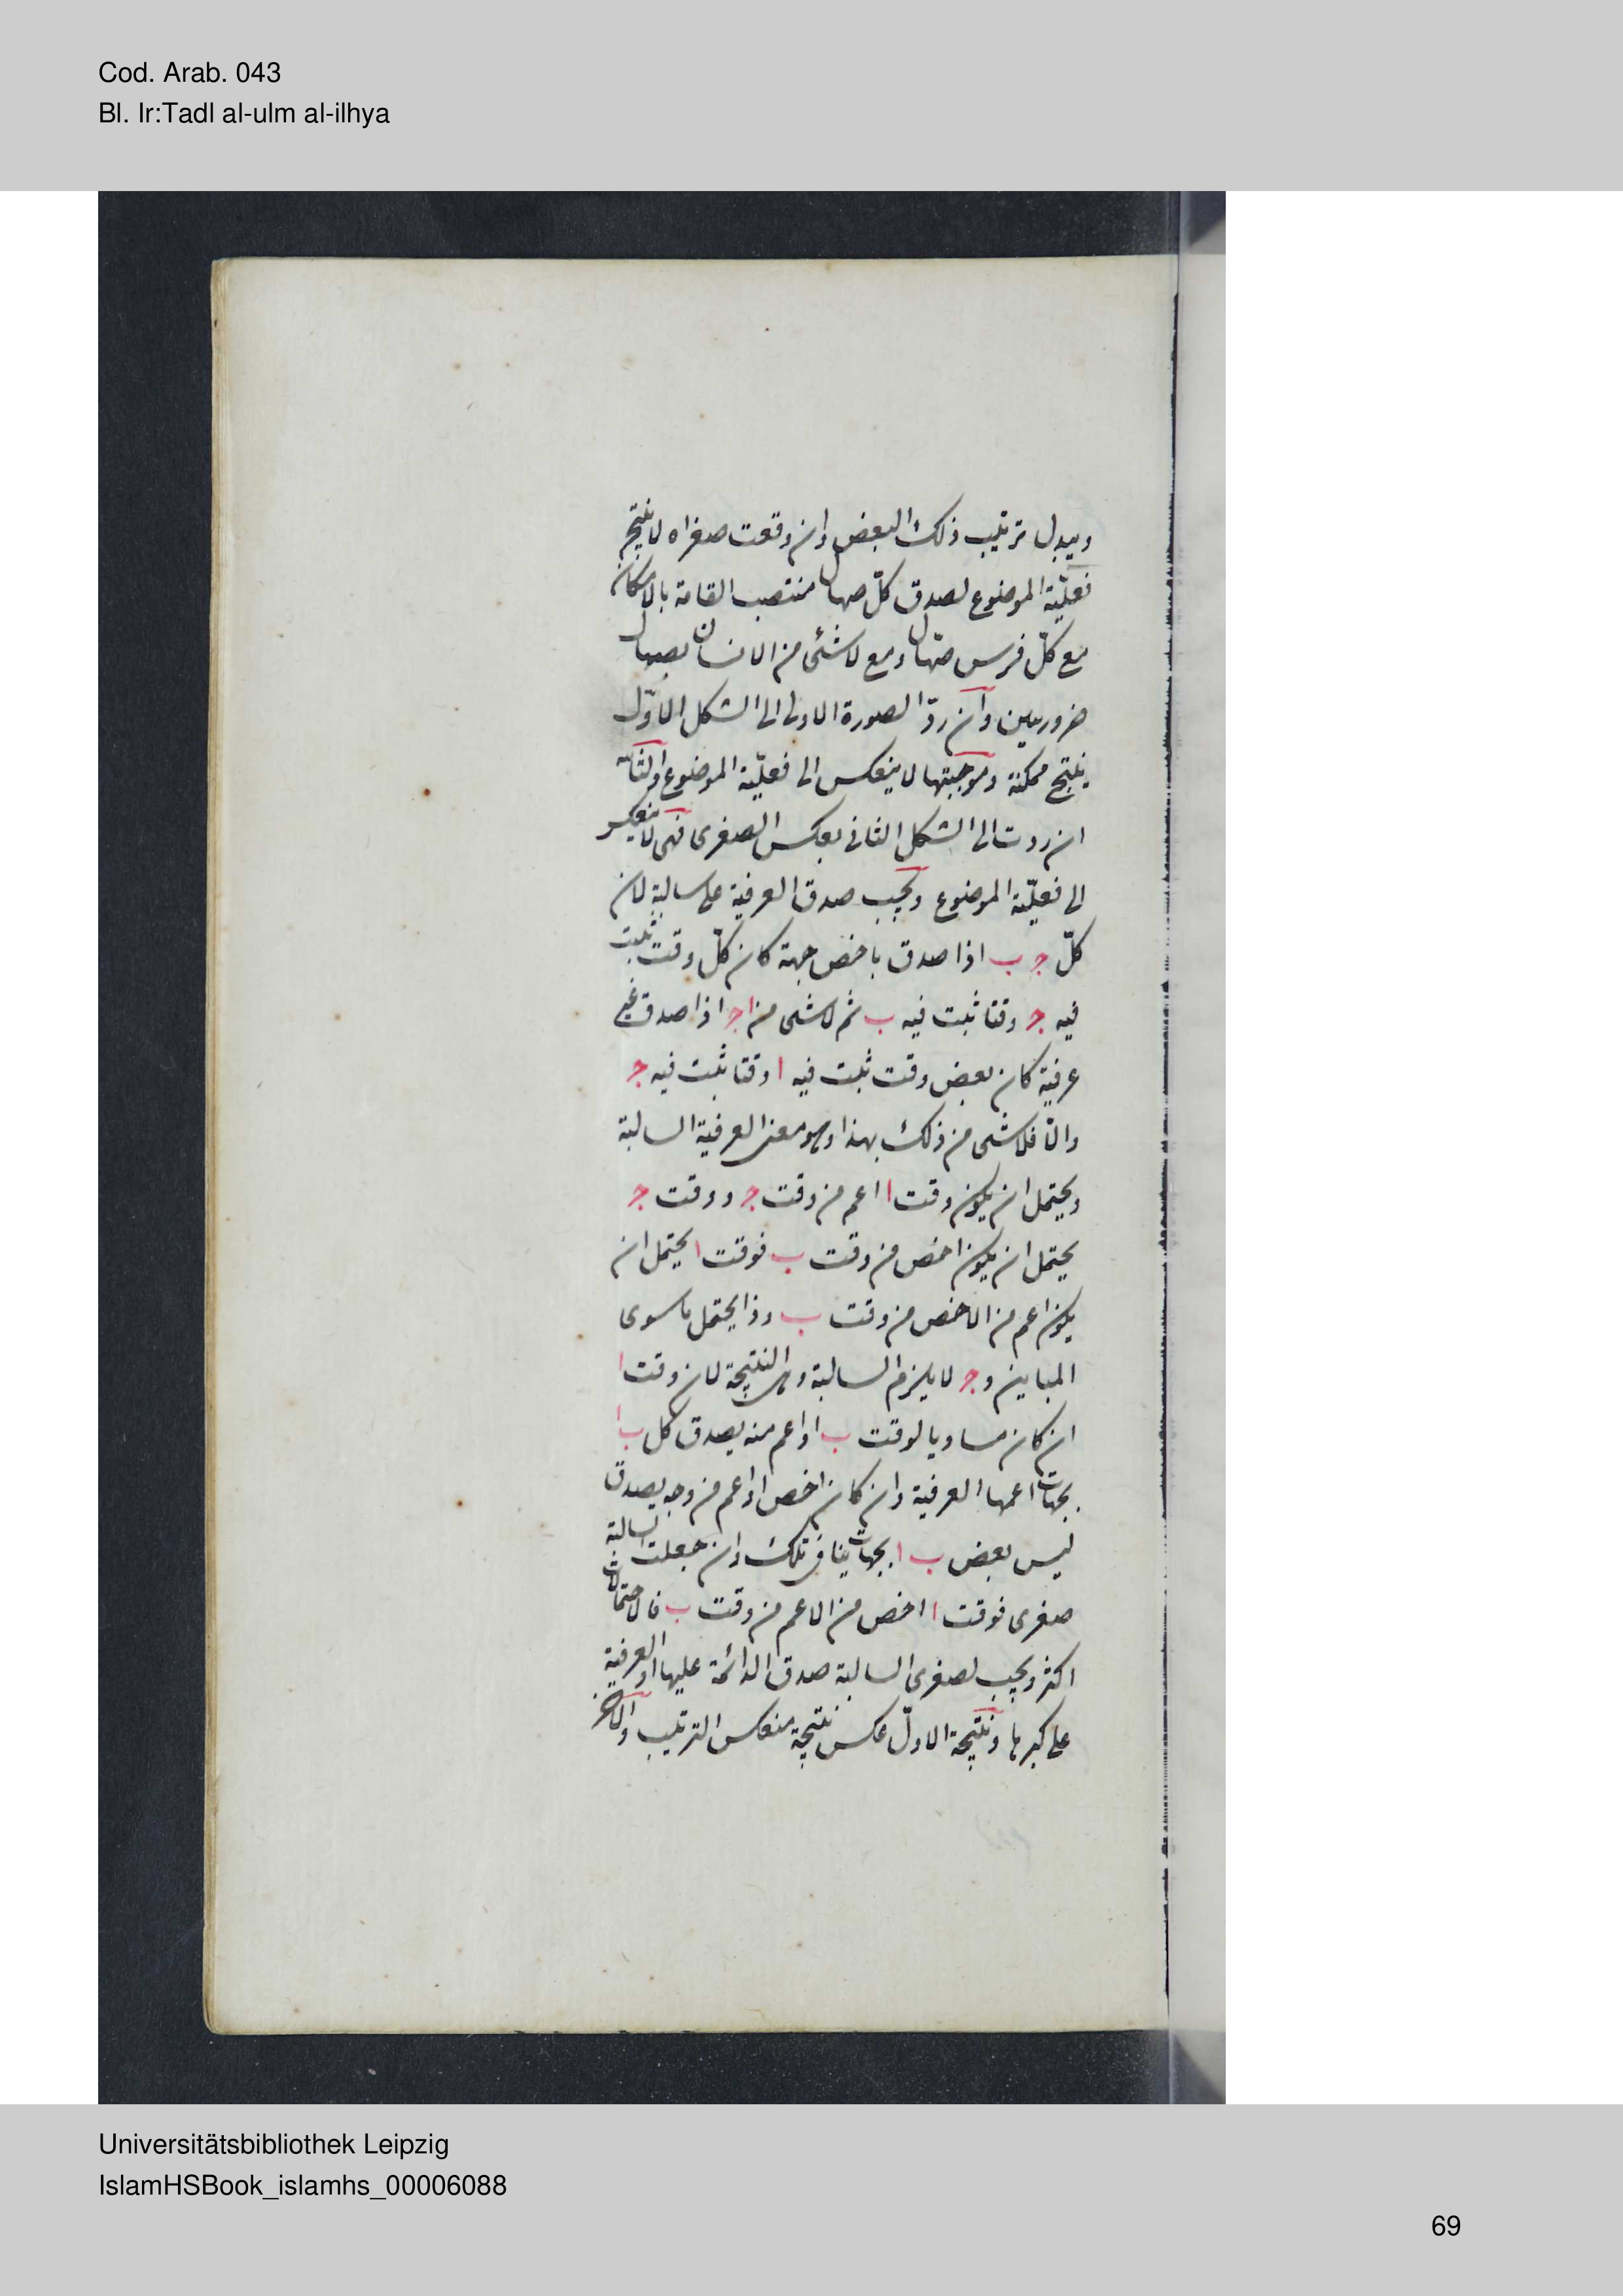 Cod. Arab. 043
Bl. Ir:Tadl al-ulm al-ilhya
ويبدل ترتيب ذلك البعض وان وقعت صغراه لا ينتج
فعليّة الموضوع لصدق كلّ صهال منتصب القامة بالامكان
مع كلّ فرس صهّال ومع لا شئ من الانسان بصهال
ضروريين وان ردّ الصورة الاولى الى الشكل الاوّل
ينتج ممكنة وموجبتها لا ينعكس الى فعليّة الموضوع والثانية
ان ردت الى الشكل الثانى بعكس الصغرى فهى لا ينعكس
الى فعليّة الموضوع ويجب صدق العرفية على سالبة لان
كلّ ج ب اذا صدق باخص جهة كان كلّ وقت ثبت
فيه ج وقتا ثبت فيه ب ثم لا شى من ا ج اذا صدق غير
عرفية كان بعض وقت ثبت فيه ا وقتا ثبت فيه ج
والا فلا شى من ذلك بهذا وهو معنى العرفية السالبة
ويحتمل ان يكون وقت ا اعم من وقت ج ووقت ج
يحتمل ان يكون اخص من وقت ب فوقت ا يحتمل ان
يكون اعم من الاخص من وقت ب وذا يحتمل ما سوى
المباين و ج لا يلزم السالبة وهى النتيجة لان وقت ا
ان كان مساويا لوقت ب او اعم منه يصدق كل ب ا
بجهات اعمها العرفية وان كان اخص او اعم من وجه يصدق
ليس بعض ب ا بجهات ينافى تلك وان جعلت السالبة
صغرى فوقت ا اخص من الاعم من وقت ب فالاحتمالات
اكثر ويجب لصغرى السالبة صدق الدائمة عليها او العرفية
على كبرها ونتيجة الاوّل عكس نتيجة منعكس الترتيب والاخر
Universitätsbibliothek Leipzig
IslamHSBook_islamhs_00006088
69